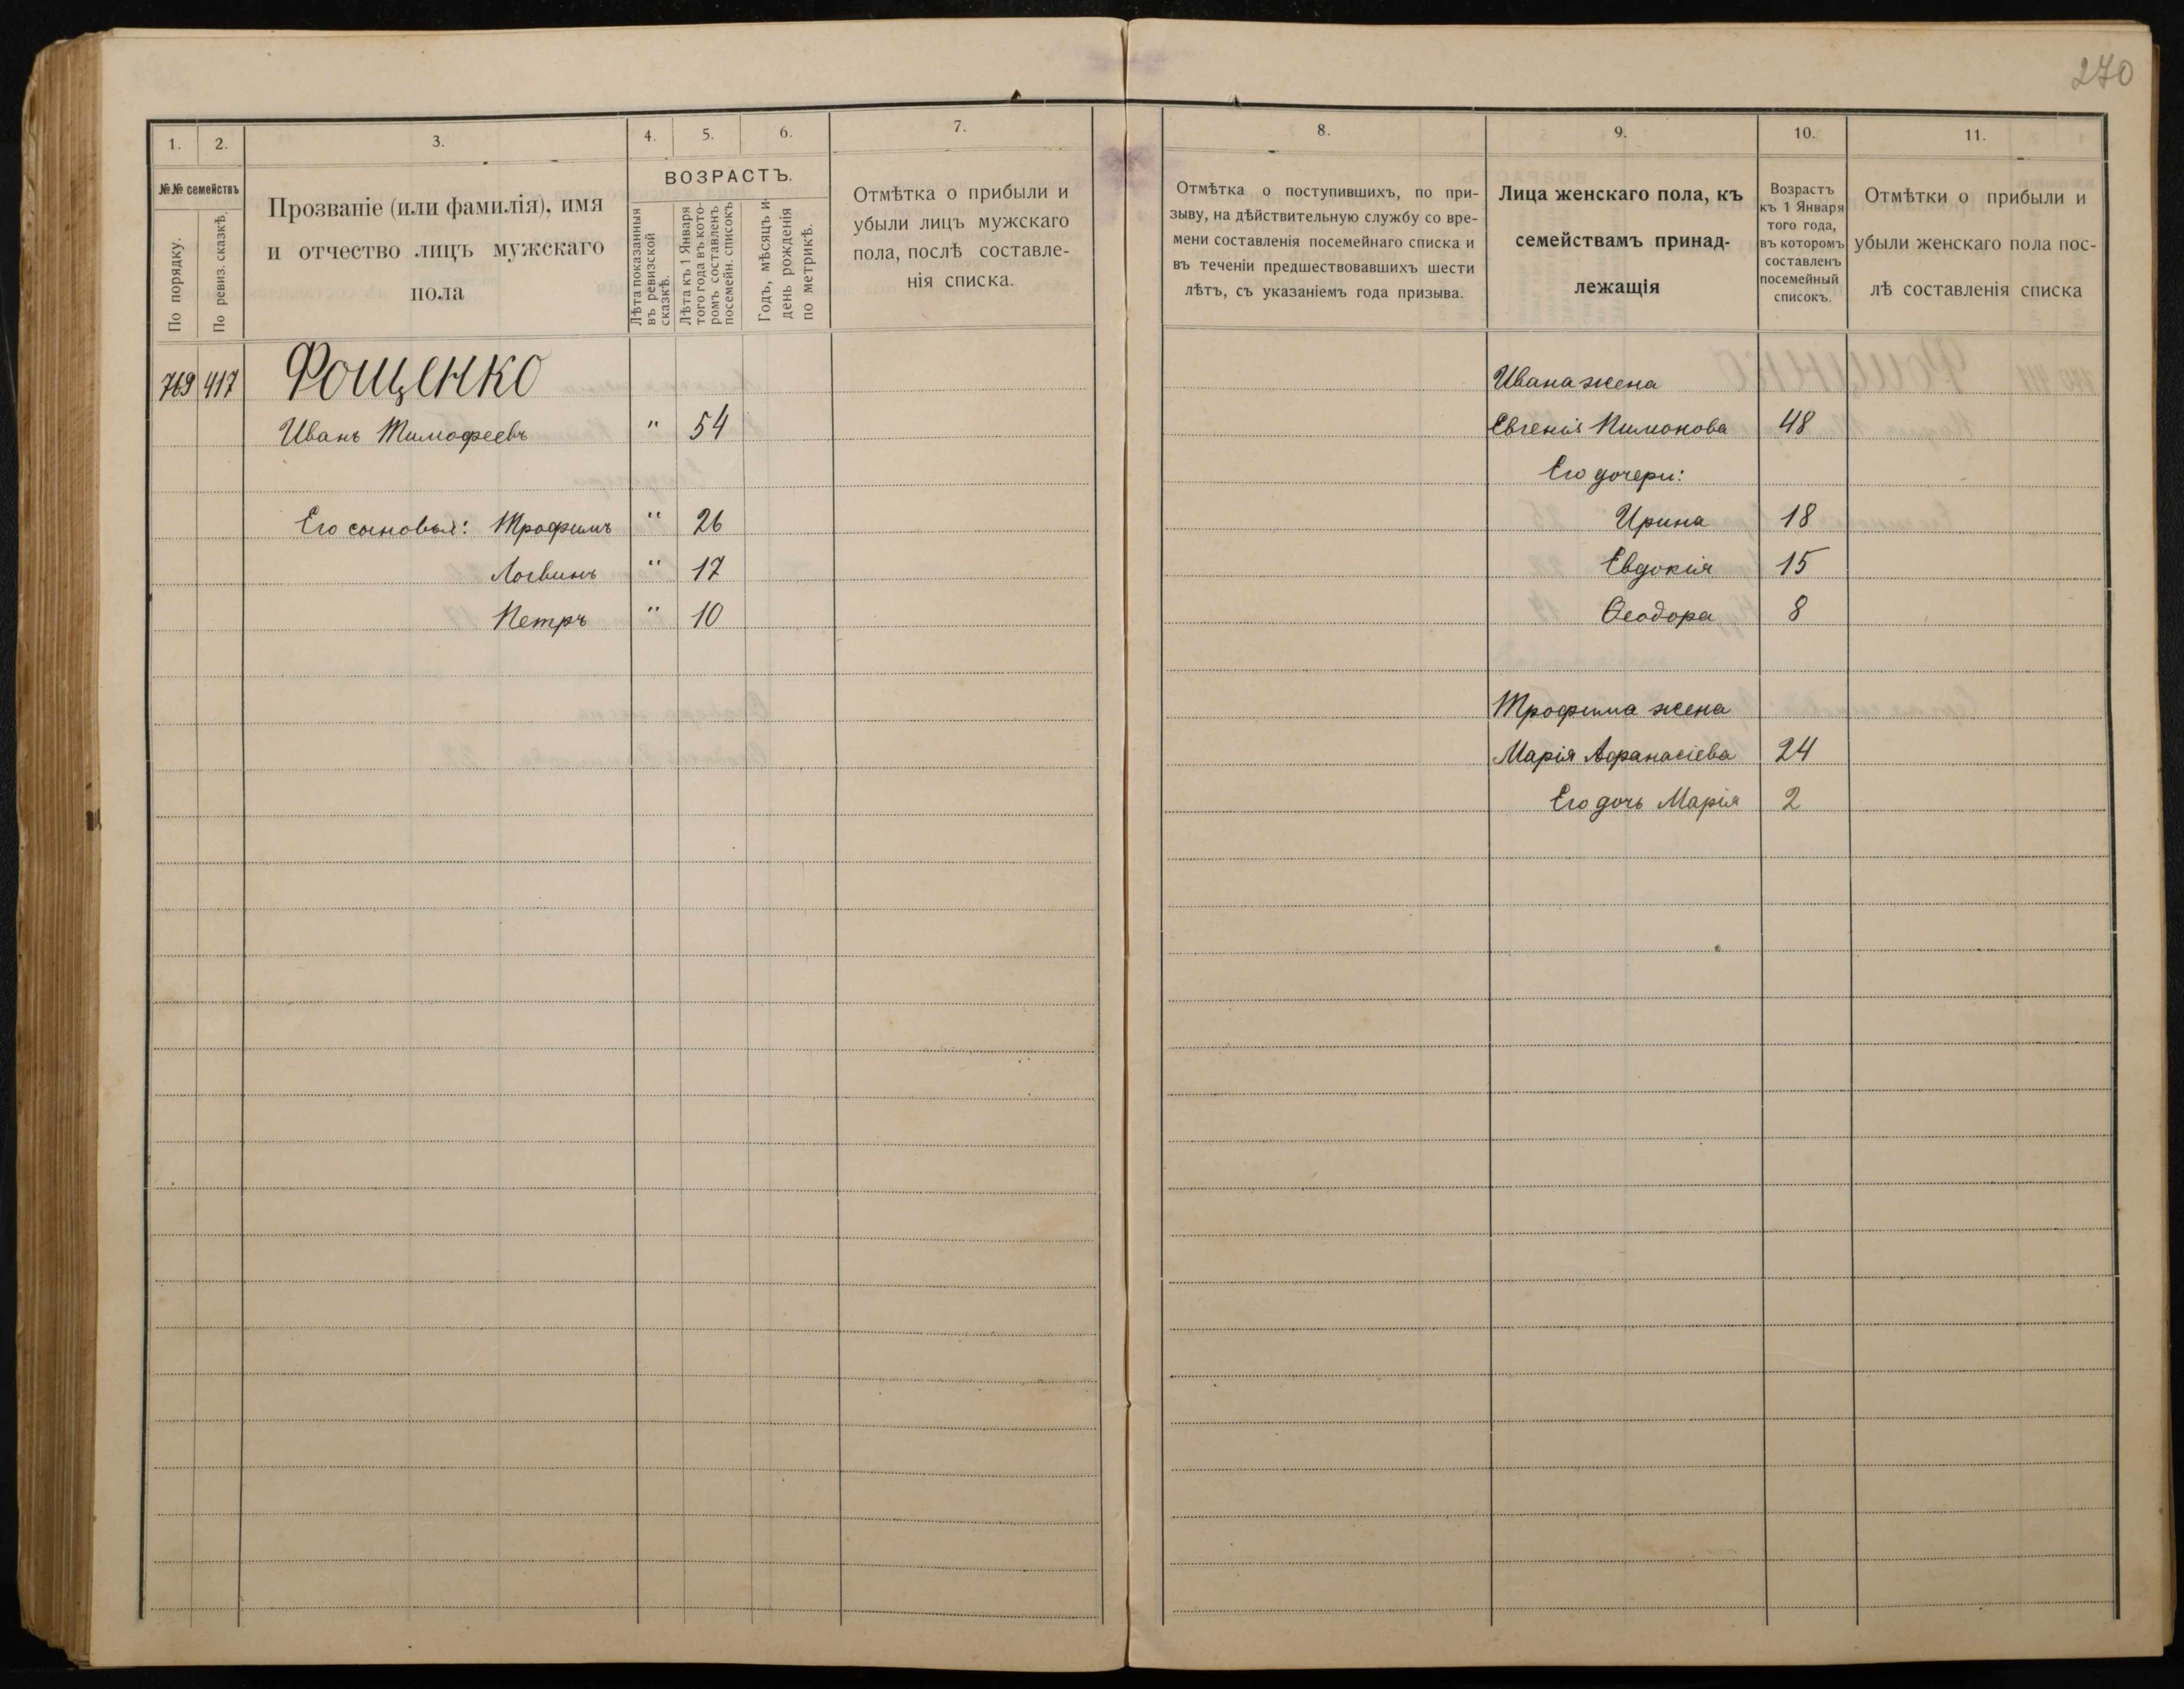 270
1. 2. 3. 4. 5. 6. 7.
№№ семействъ
По порядку.
По ревиз. сказкѣ.
Прозваніе (или фамилія), имя
и отчество лицъ мужскаго
пола
ВОЗРАСТЪ.
Лѣта показанныя
въ ревизской
сказкѣ.
Лѣта къ 1 Января
того года въ кото-
ромъ составленъ
посемейн. списокъ
Годъ, мѣсяцъ и
день рожденія
по метрикѣ.
Отмѣтка о прибыли и
убыли лицъ мужскаго
пола, послѣ составле-
нія списка.
769 417 Фощенко
Иванъ Тимофеевъ " 54
Его сыновья: Трофимъ " 26
Логвинъ " 17
Петръ " 10
8. 9. 10. 11.
Отмѣтка о поступившихъ, по при-
зыву, на дѣйствительную службу со вре-
мени составленія посемейнаго списка и
въ теченіи предшествовавшихъ шести
лѣтъ, съ указаніемъ года призыва.
Лица женскаго пола, къ
семействамъ принад-
лежащія
Возрастъ
къ 1 Января
того года,
въ которомъ
составленъ
посемейный
списокъ.
Отмѣтки о прибыли и
убыли женскаго пола пос-
лѣ составленія списка
Ивана жена
Евгенія Пимонова 48
Его дочери:
Ирина 18
Евдокія 15
Ѳеодора 8
Трофима жена
Марія Афанасіева 24
Его дочь Марія 2